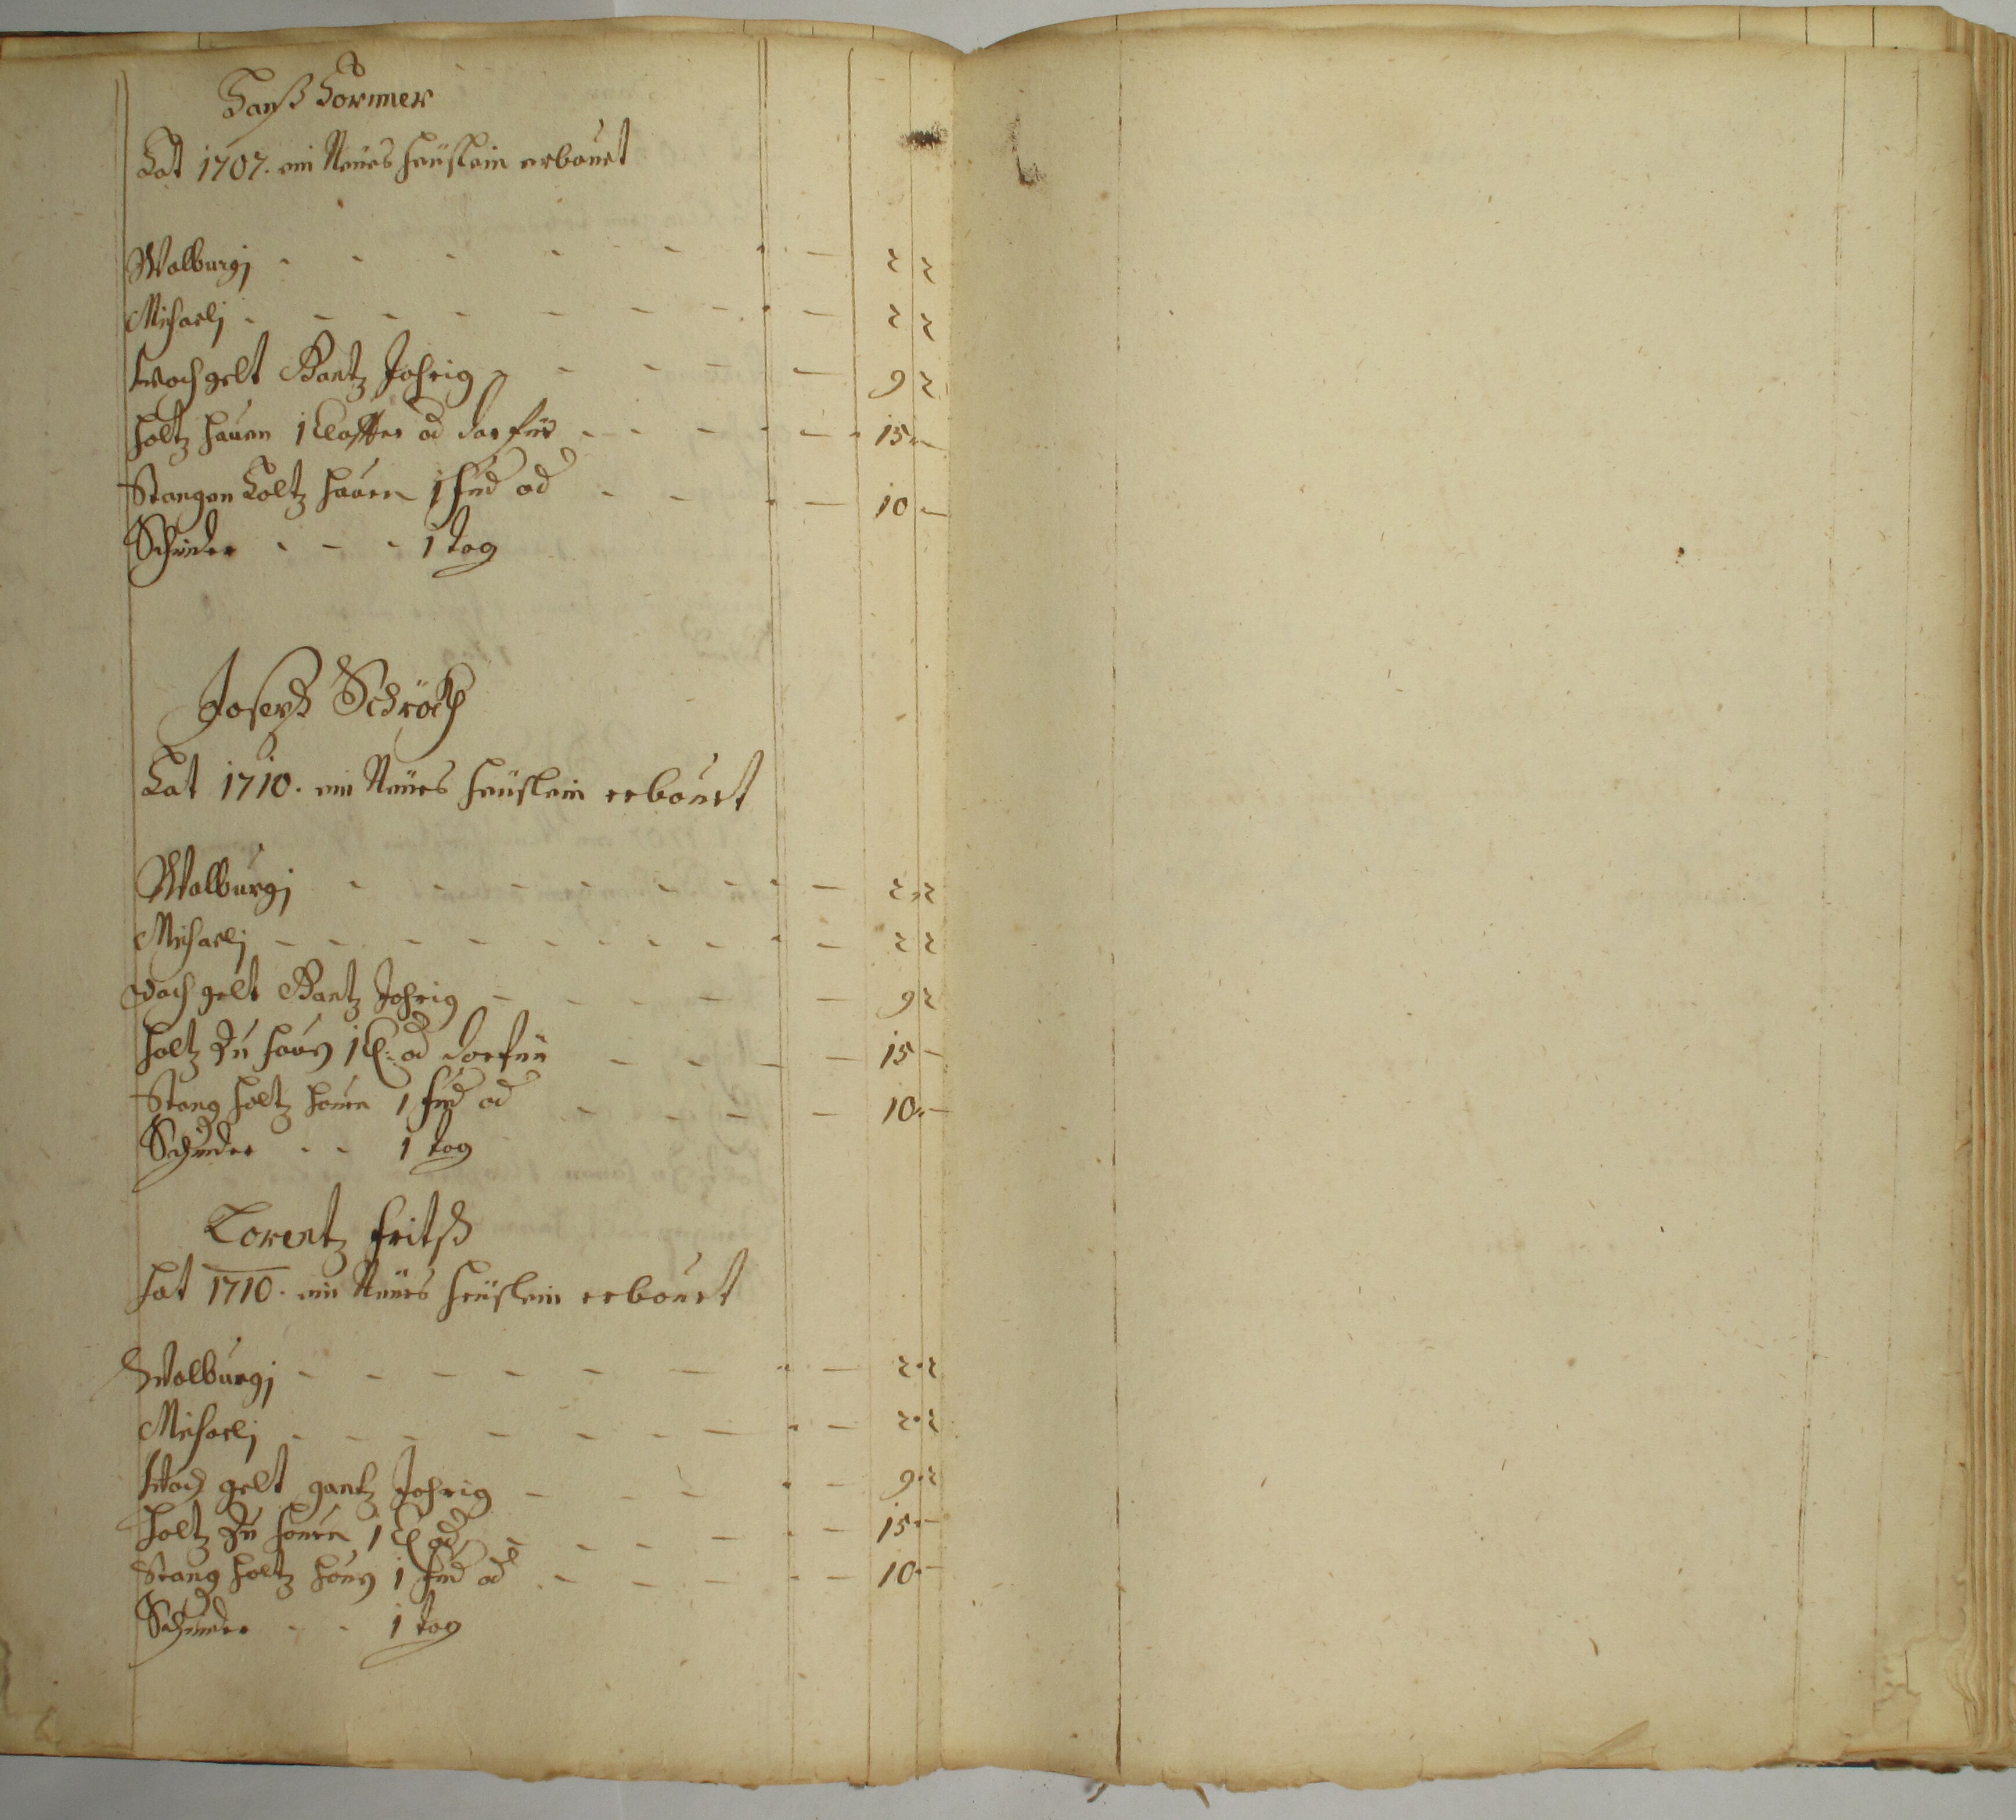 Hanß Hörmer
Hat 1707. ein Neues heüslein erbauet
Walburgj - - - - - - - - 2 2
Michaelj - - - - - - - - 2 2
Wach gelt Gantz Jahrig - - - - - 9 2
holtz hauen 1 Claffter od darfür - - - - - 15 -
Stangen Holtz hauen 1 fud od - - - - 10 -
Schnider - - - 1 tag
Joseph Schröck
Hat 1710. ein Neues heüslein erbauet
Walburgj - - - - - - - - 2 2
Michaelj - - - - - - - - - 2 2
Wach gelt Gantz Jahrig - - - - - 9 2
holtz zu hauen 1 Cl. od darfür - - - - 15 -
Stang holtz hauen 1 fud od - - - - 10 -
Schnider - - 1 tag
Lorentz fritß
hat 1710. ein Neues heüslein erbauet
Walburgj - - - - - - - - 2 2
Michaelj - - - - - - - - - 2 2
Wach gelt gantz Jahrig - - - - - 9 2
holtz zu hauen 1 Cl od - - - - - 15 -
Stang holtz hauen 1 fud od - - - - - 10 -
Schnider - - 1 tag